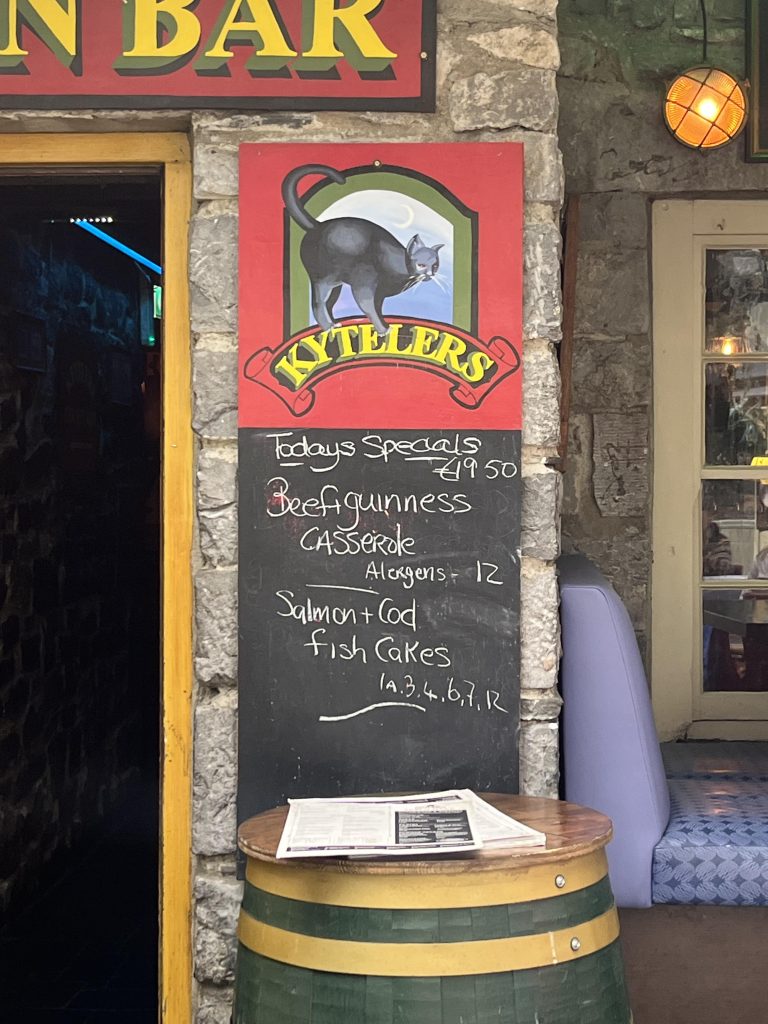 N BAR
KYTELERS
Todays Specials
€19 50
Beef+guinness
CASSEROLE
Alergens - 12
Salmon+Cod
fish Cakes
1A.3.4.6,7,12